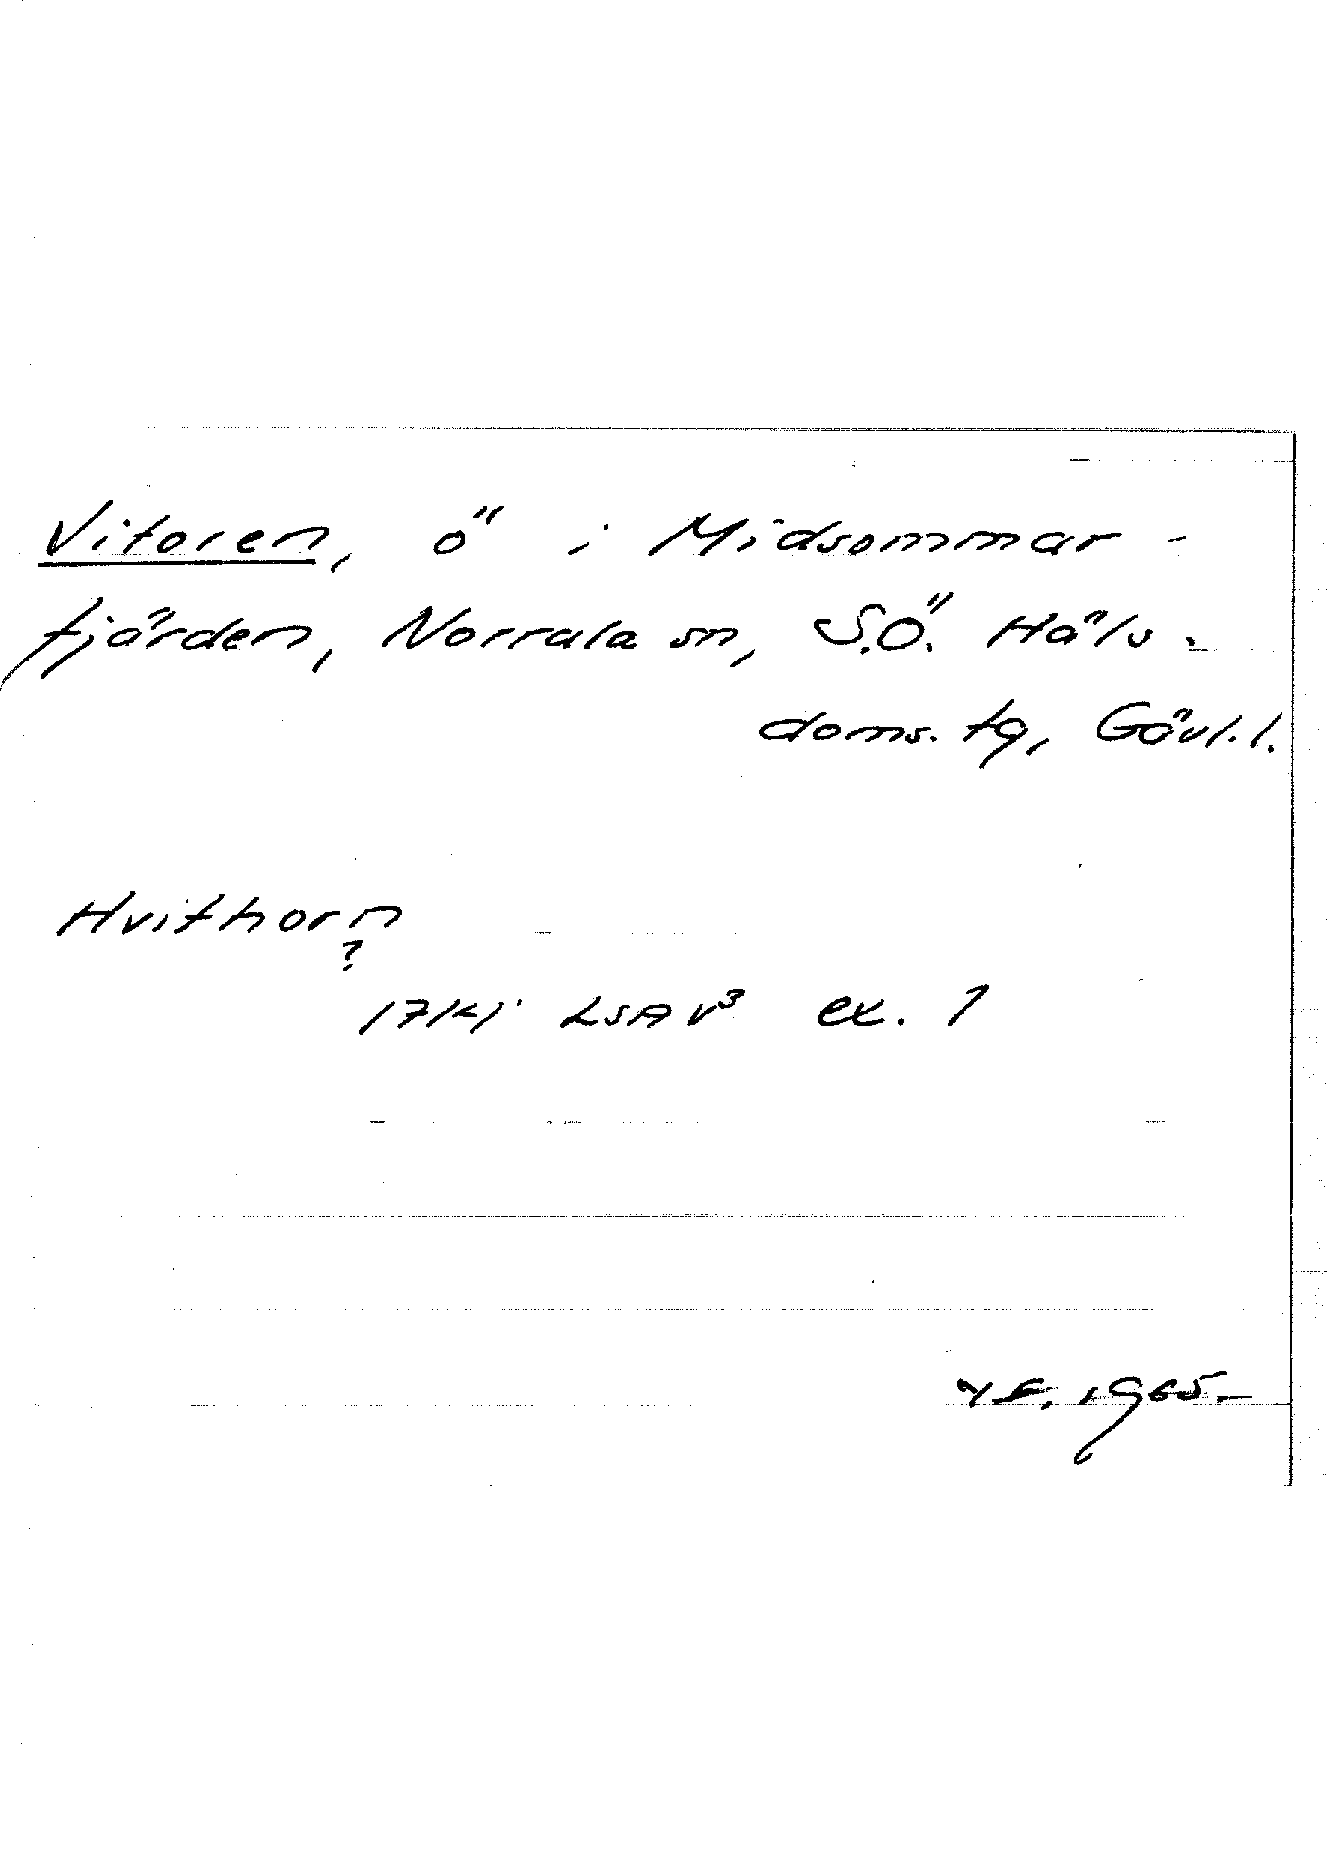 Vitoren, ö i Midsommar-
fjärden, Norrala sn, S.Ö. Häls.
doms. tg, Gävl. l.
Hvithorn
?
LSA V³ ex. 1
1965.